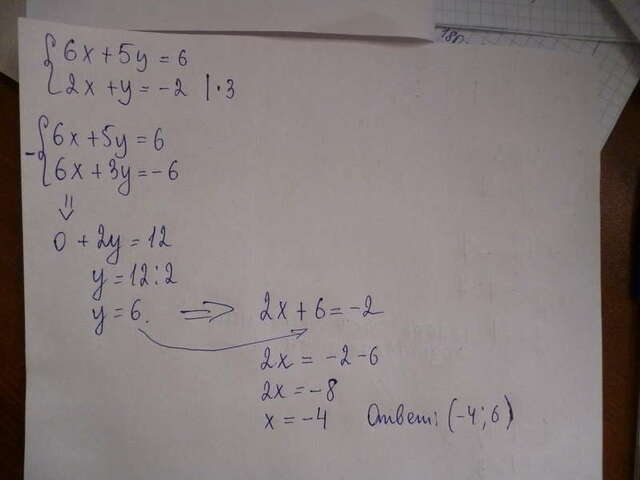 18р.
6x + 5y = 6
2x + y = -2 | · 3
6x + 5y = 6
- 6x + 3y = -6
⇓
0 + 2y = 12
y = 12 : 2
y = 6. ⇒ 2x + 6 = -2
2x = -2 - 6
2x = -8
x = -4 Ответ: (-4; 6)